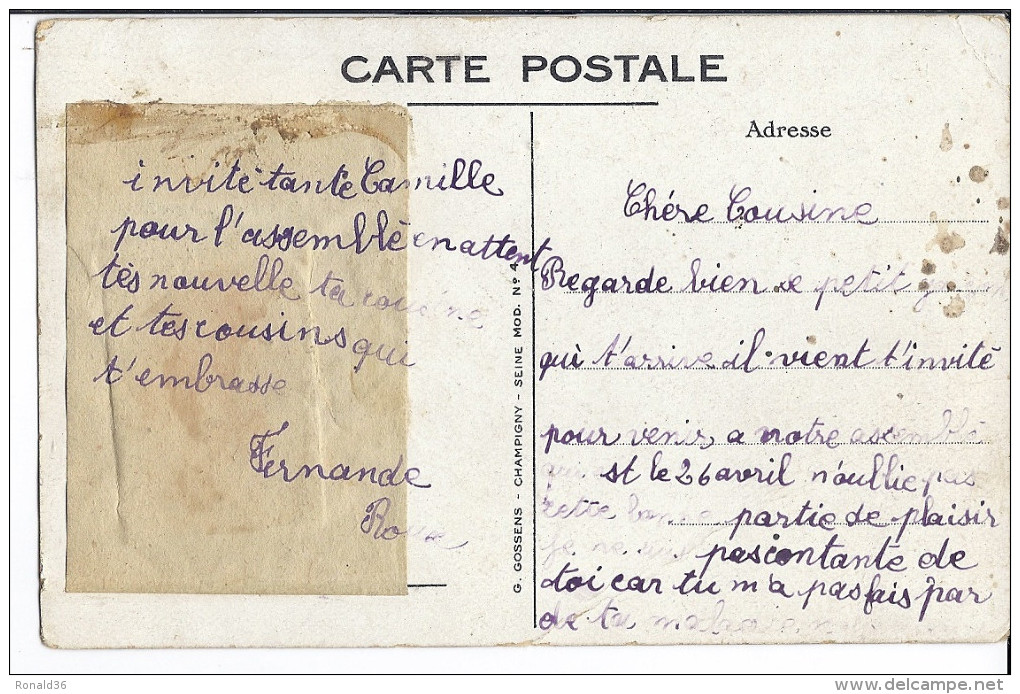 CARTE POSTALE
Adresse
Chére Cousine
Regarde bien se petit
qui t'arrive il vient t'invité
pour venir a notre assemblé
qui st le 26 avril n'oullie pas
cette bonne partie de plaisir
je ne suis pas contante de
toi car tu m'a pas fais par
de ta
invité tante Camille
pour l'assemblé en attent
tès nouvelle ta cousine
et tes cousins qui
t'embrasse
Fernande
G. GOSSENS - CHAMPIGNY - SEINE MOD. N° 4
Ronald36
www.delcampe.net